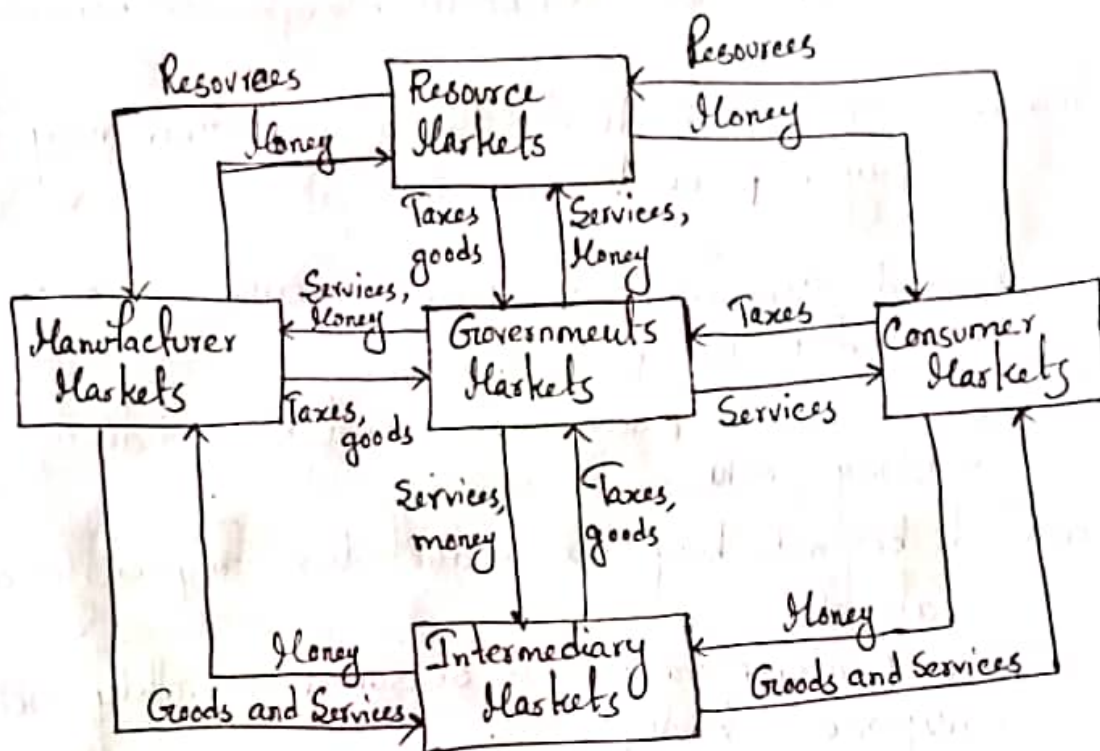 Resources
Resources
Resource
Markets
Money
Money
Taxes
goods
Services,
Money
Services,
Money
Taxes
Manufacturer
Markets
Governments
Markets
Consumer
Markets
Taxes,
goods
Services
Services,
money
Taxes,
goods
Money
Money
Intermediary
Markets
Goods and Services
Goods and Services